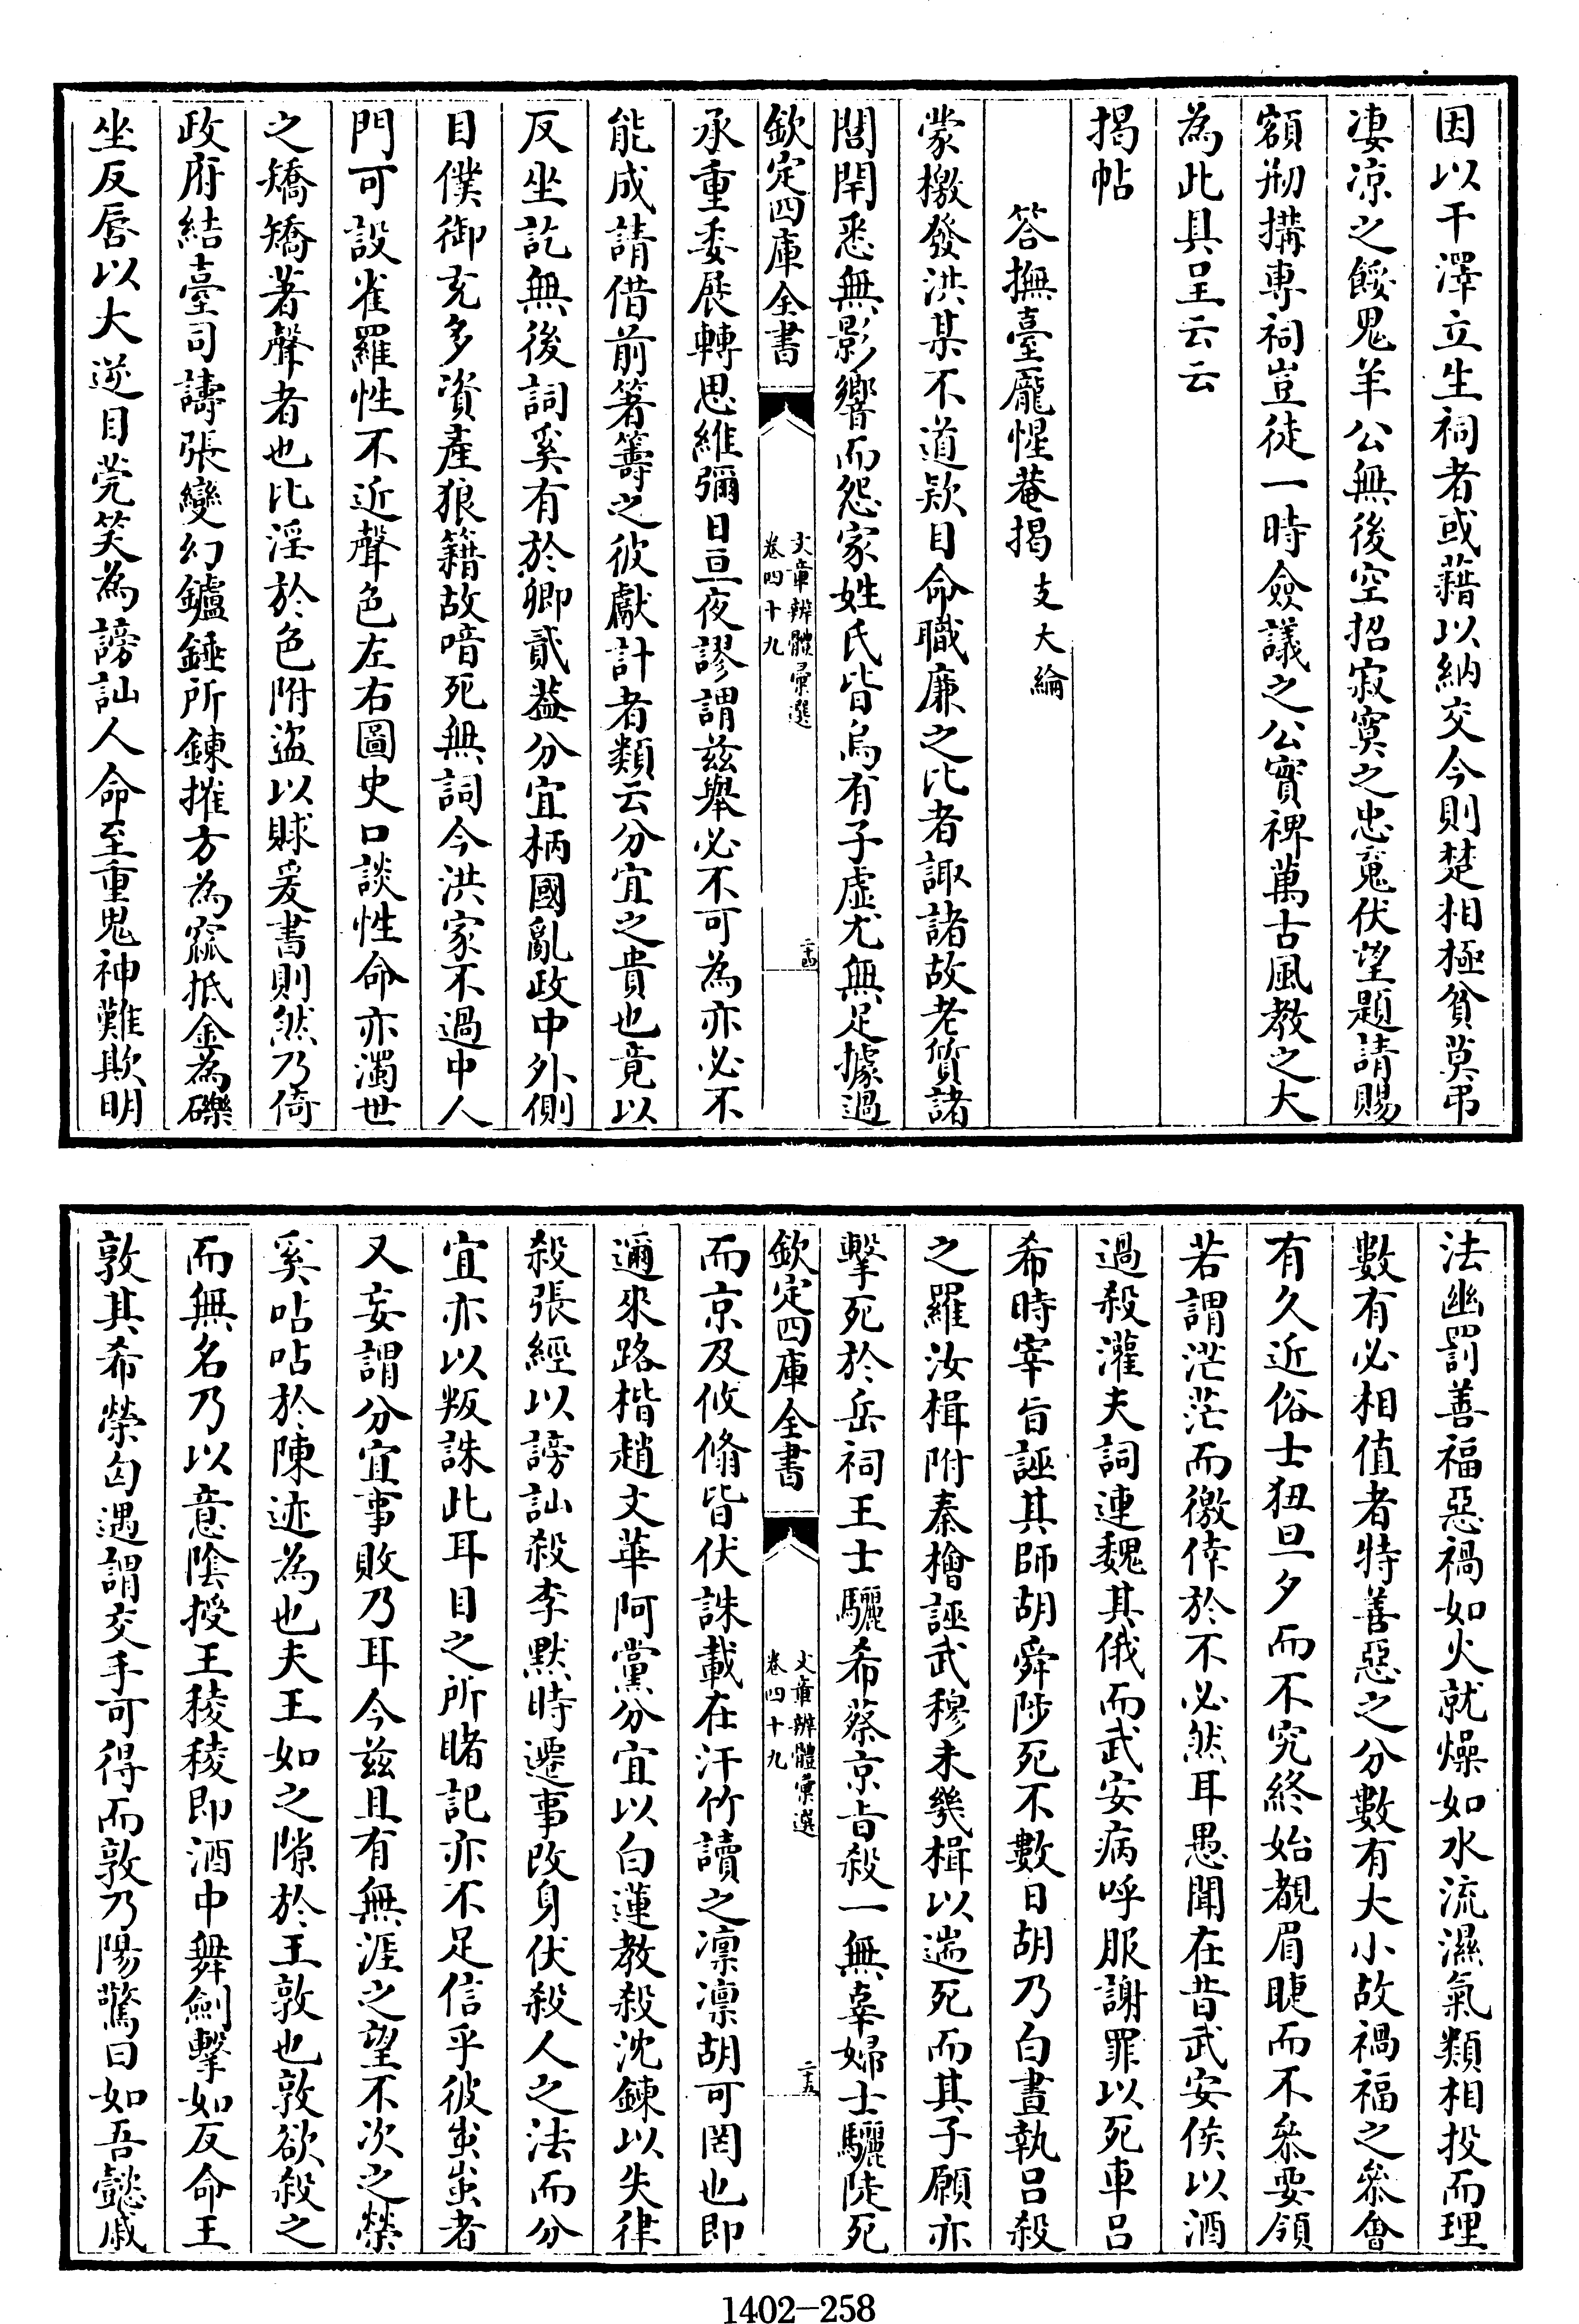 因以干澤立生祠者或藉以納交今則楚相極貧莫弔
凄凉之餒鬼羊公無後空招寂寞之忠䰟伏望題請賜
額剏搆専祠豈徒一時僉議之公實裨萬古風教之大
為此具呈云云
揭帖
答撫臺龐惺菴揭 支大綸
蒙檄發洪某不道欵目命職廉之比者諏諸故老質諸
閭閈悉無影響而怨家姓氏皆烏有子虚尤無足據過
欽定四庫全書
文章辨體彚選
卷四十九
二十四
承重委展轉思維彌日亘夜謬謂兹舉必不可為亦必不
能成請借前箸籌之彼獻計者類云分宜之貴也竟以
反坐訖無後詞奚有於卿貳葢分宜柄國亂政中外側
目僕御充多資產狼籍故喑死無詞今洪家不過中人
門可設雀羅性不近聲色左右圖史口談性命亦濁世
之矯矯著聲者也比淫於色附盜以賕爰書則然乃倚
政府結臺司譸張變幻鑪錘所鍊摧方為窳抵金為礫
坐反唇以大逆目莞笑為謗訕人命至重鬼神難欺明
法幽罰善福惡禍如火就燥如水流濕氣類相投而理
數有必相值者特善惡之分數有大小故禍福之叅會
有久近俗士狃旦夕而不究終始覩眉睫而不叅要領
若謂茫茫而徼倖於不必然耳愚聞在昔武安侯以酒
過殺灌夫詞連魏其俄而武安病呼服謝罪以死車吕
希時宰旨誣其師胡舜陟死不數日胡乃白晝執吕殺
之羅汝楫附秦檜誣武穆未幾楫以遄死而其子願亦
擊死於岳祠王士驪希蔡京旨殺一無辜婦士驪陡死
欽定四庫全書
文章辨體彚選
卷四十九
二十五
而京及攸翛皆伏誅載在汗竹讀之凛凛胡可罔也即
邇來路楷趙文華阿黨分宜以白蓮教殺沈鍊以失律
殺張經以謗訕殺李默時遷事改身伏殺人之法而分
宜亦以叛誅此耳目之所睹記亦不足信乎彼蚩蚩者
又妄謂分宜事敗乃耳今兹且有無涯之望不次之榮
奚呫呫於陳迹為也夫王如之隙於王敦也敦欲殺之
而無名乃以意陰授王稜稜即酒中舞劍擊如反命王
敦其希榮匄遇謂交手可得而敦乃陽驚曰如吾懿戚
1402—258